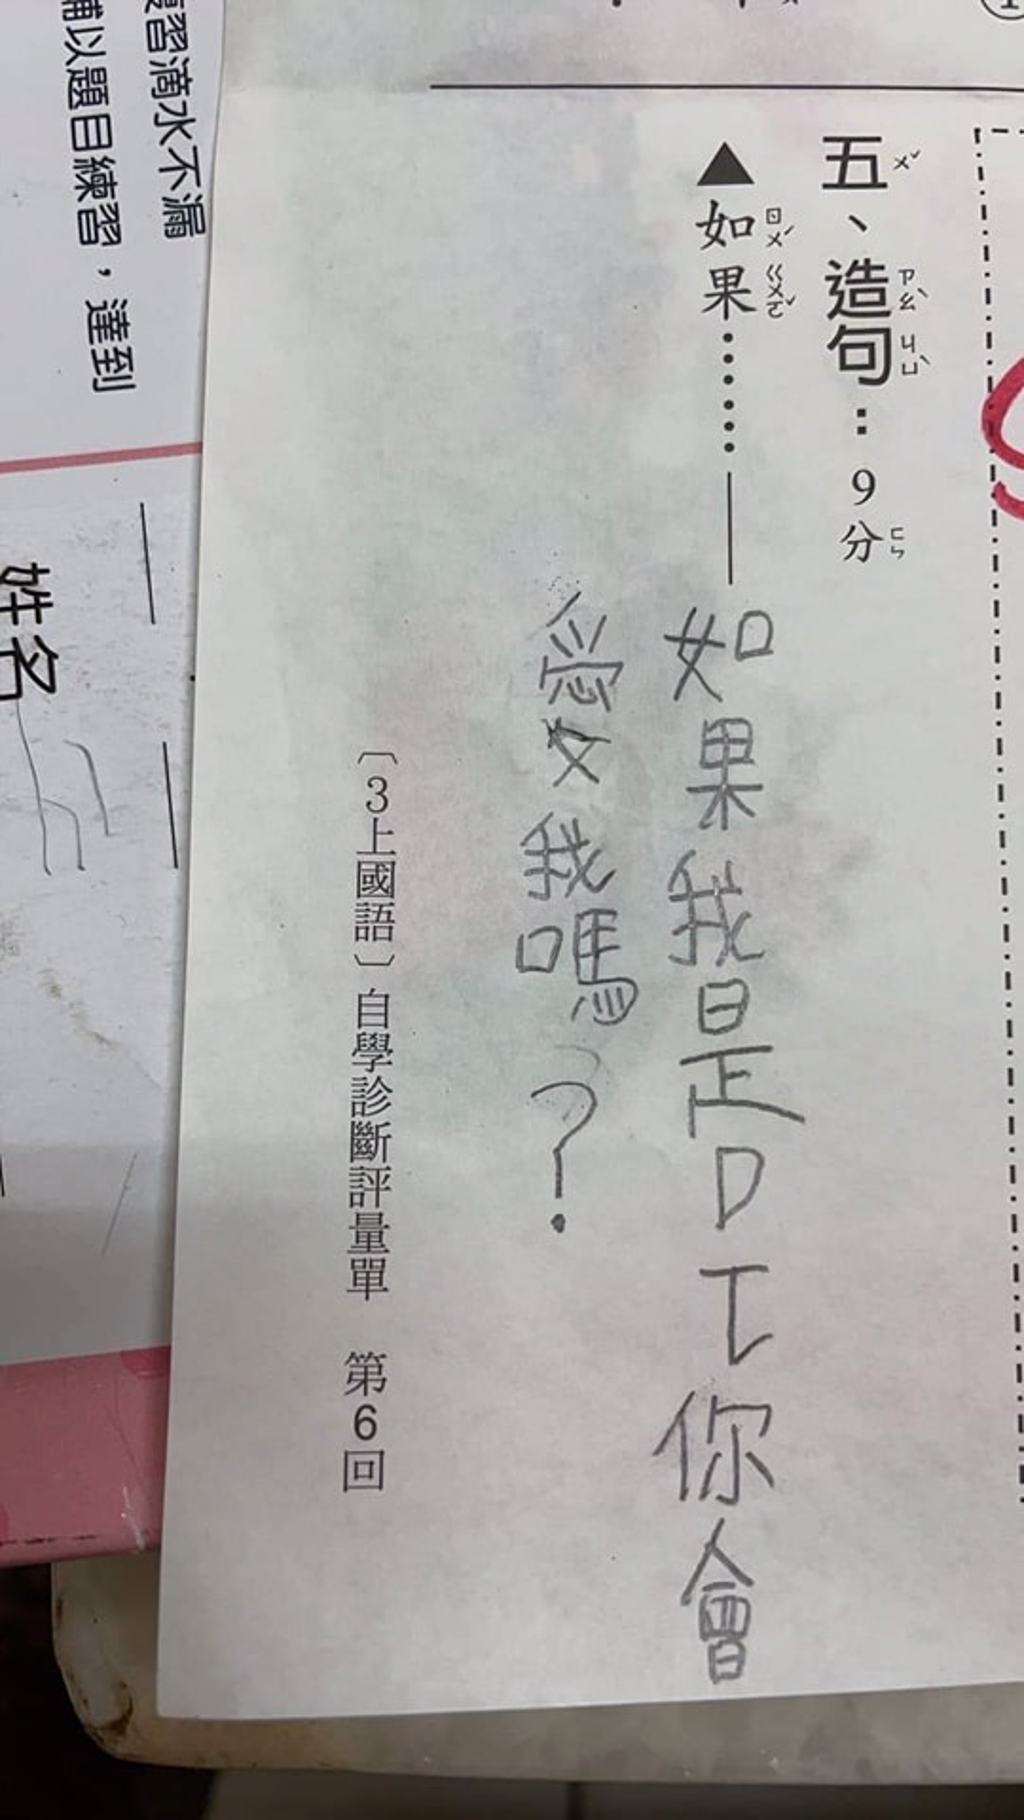 五、造句：9分
▲如果……——
如果我是DT你會
愛我嗎？
〔3上國語〕自學診斷評量單　第6回
習滴水不漏
輔以題目練習，達到
姓名